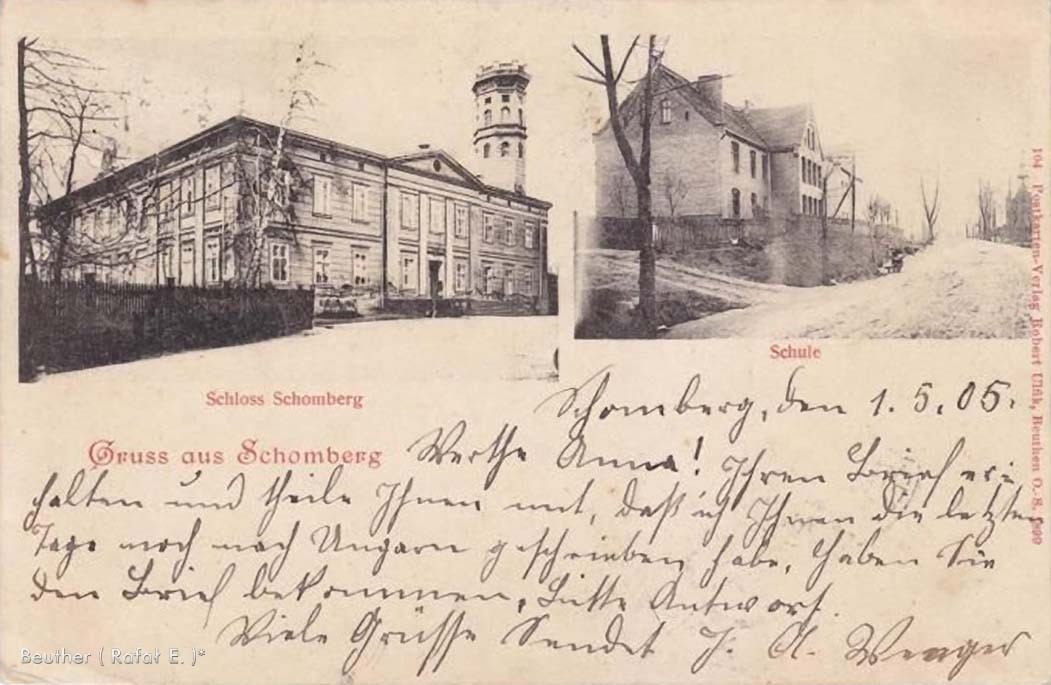 Schloss Schomberg
Schule
104 Postkarten-Verlag Robert Ulfik, Beuthen O.-S.
Gruss aus Schomberg
Schomberg, den 1.5.05.
Werthe Anna! Ihren Brief er-
halten und theile Ihnen mit, daß ich Ihnen die letzten
Tage noch nach Ungarn geschrieben habe, haben Sie
den Brief bekommen, Bitte Antwort.
Viele Grüsse Sendet
Beuther ( Rafał E. )*